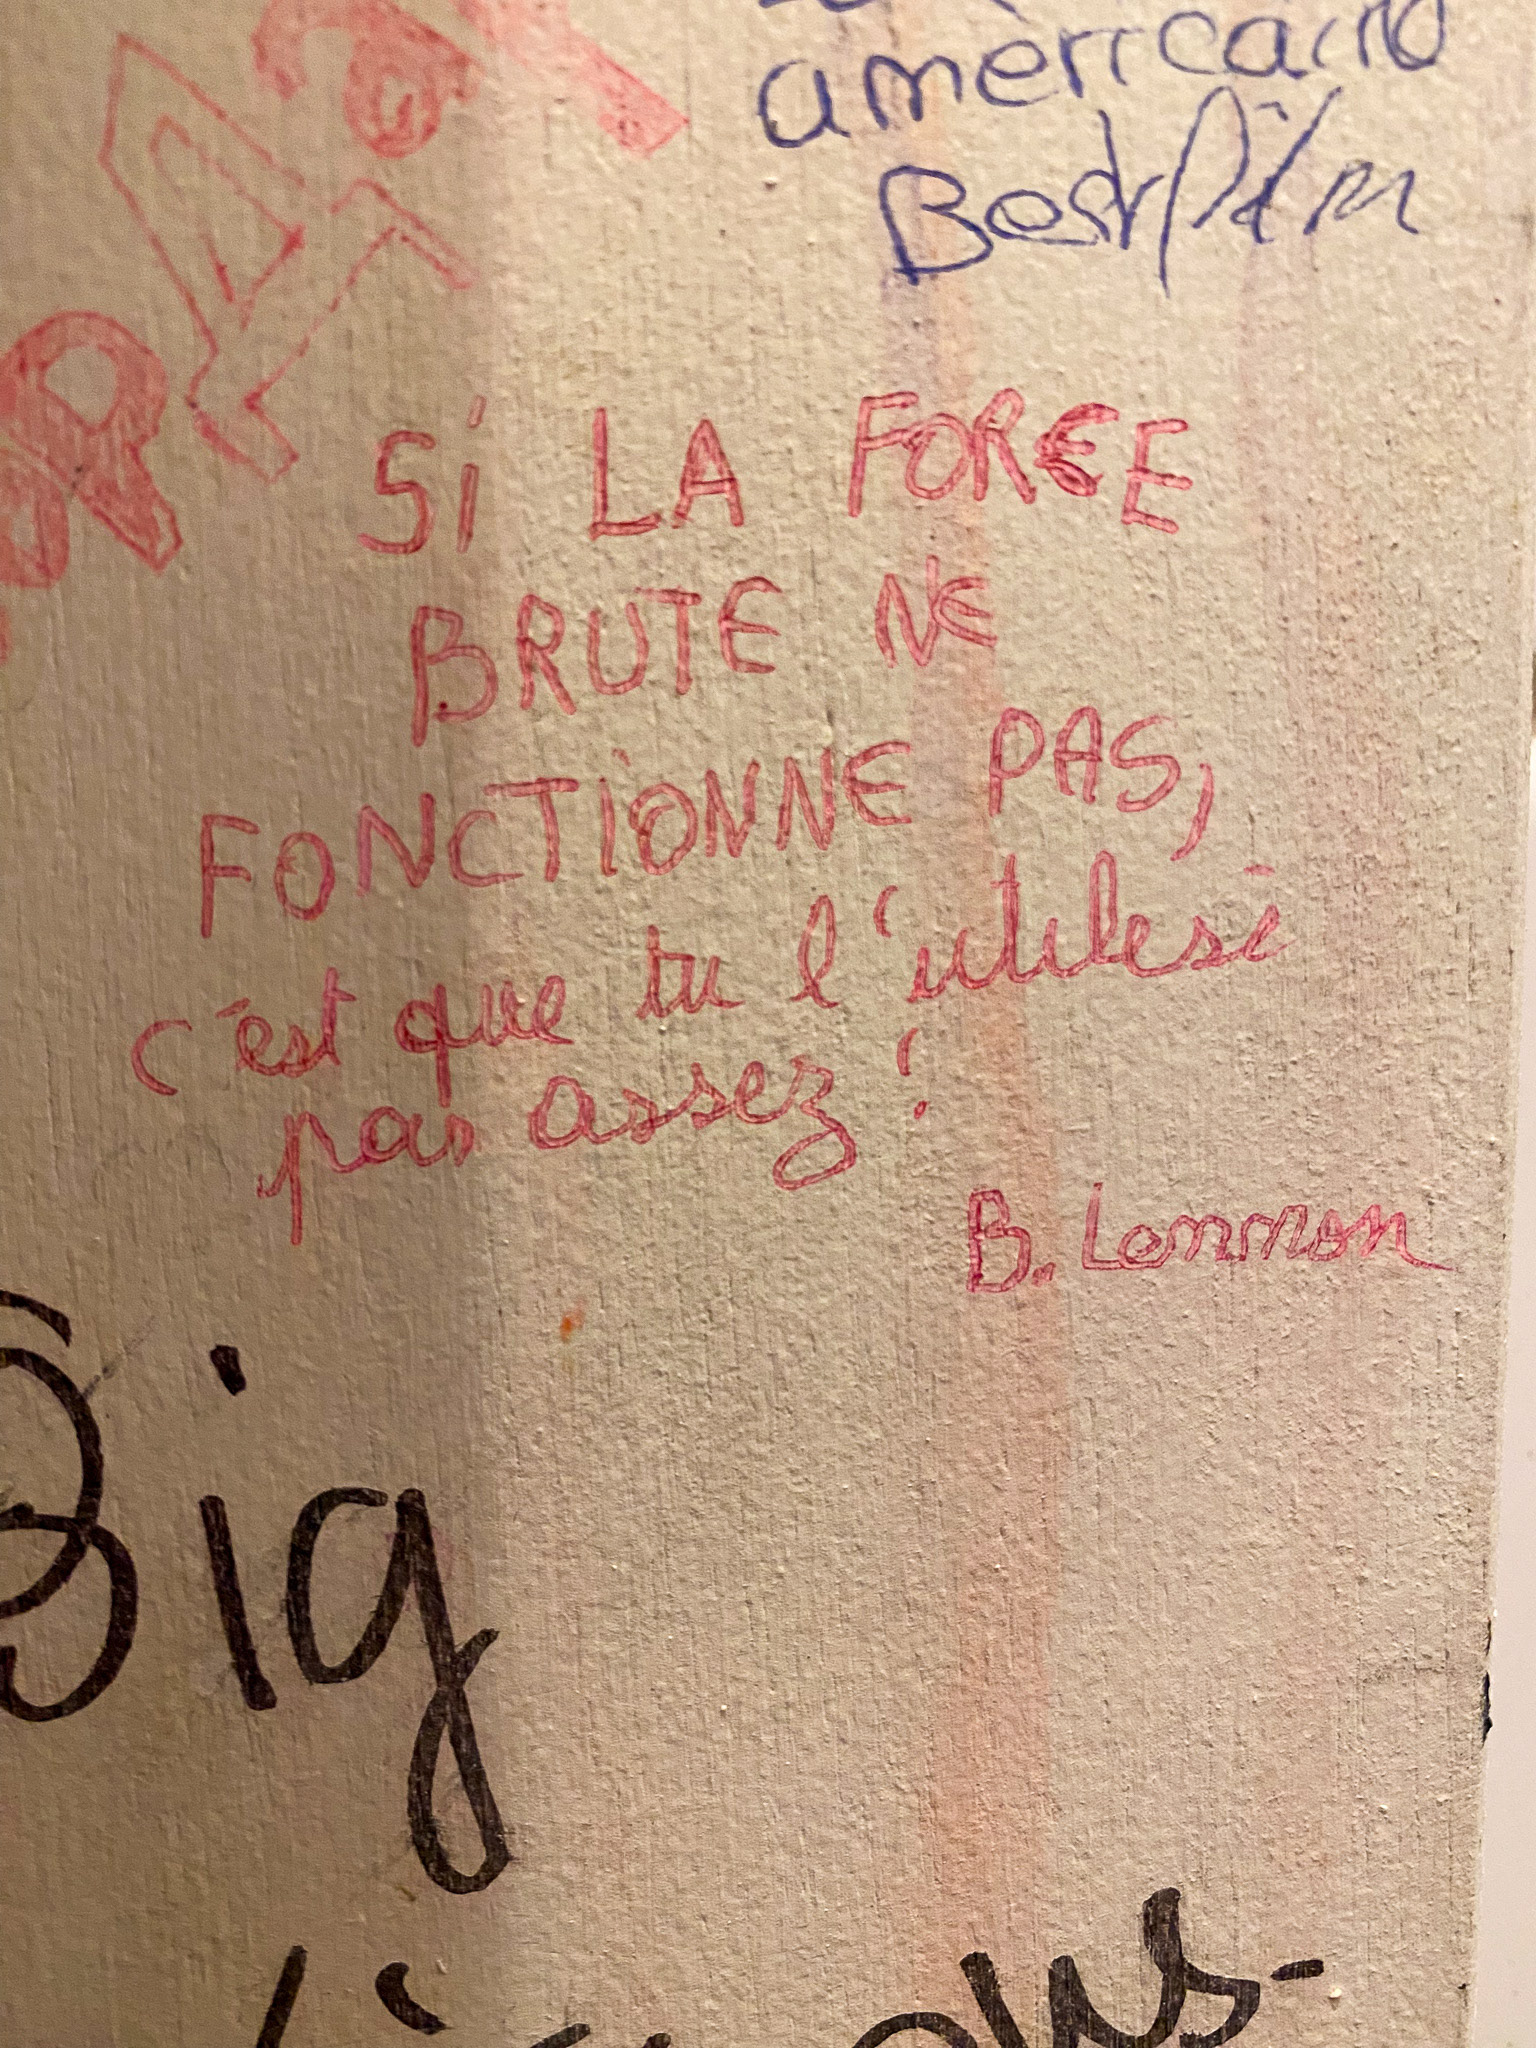 américain
SI LA FORCE
BRUTE NE
FONCTIONNE PAS,
c'est que tu l'utilise
pas assez !
B. Lennon
Big